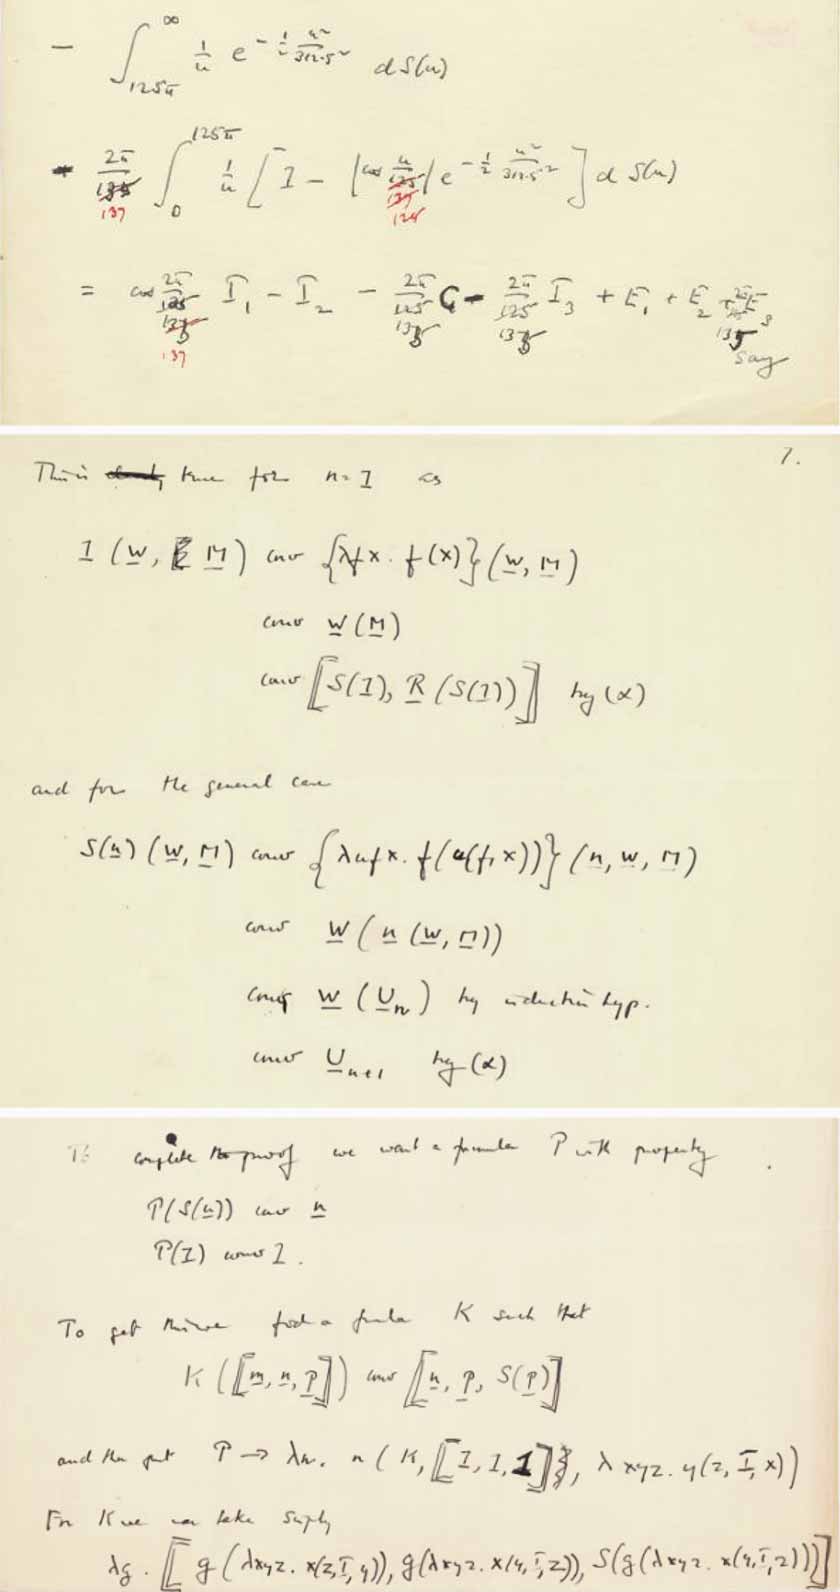 − ∫_{125π}^{∞} 1/u e^{−1/2 u²/312·5²} dS(u)
2π/137 ∫_0^{125π} 1/u [1 − |cos u/125| e^{−1/2 u²/312·5²}] d S(u)
= cos 2π/137 I₁ − I₂ − 2π/ C − 2π/ I₃ + E₁ + E₂ + E₃
say
7.
This is true for n=1 as
1 (w, M) conv {λfx. f(x)}(w, M)
conv w(M)
conv [[S(1), R(S(1))]] by (α)
and for the general case
S(n) (w, M) conv {λufx. f(u(f, x))} (n, w, M)
conv w(n(w, M))
conv w(Uₙ) by induction hyp.
conv Uₙ₊₁ by (α)
To complete the proof we want a formula P with property
P(S(n)) conv n
P(1) conv 1.
To get this we find a formula K such that
K([[m, n, p]]) conv [[n, p, S(p)]]
and then put P → λn. n(K, [[1, 1, 1]], λxyz. y(z, I, x))
For K we can take simply
λg. [[g(λxyz. x(z, I, y)), g(λxyz. x(y, I, z)), S(g(λxyz. x(y, I, z)))]]